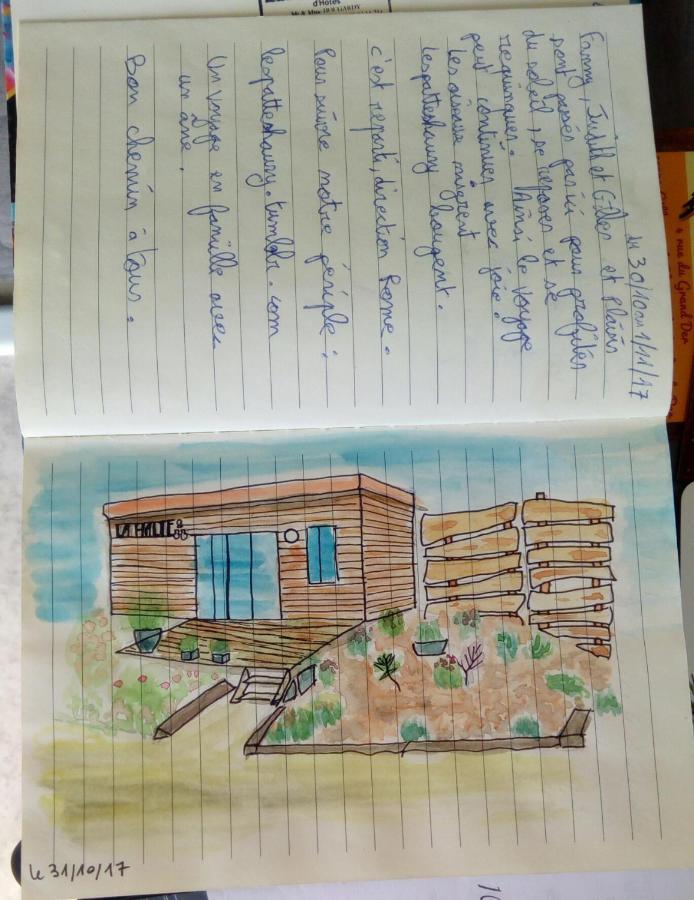 du 30/10 au 1/11/17
Fanny, Judith et Gilles et Plaüs
sont passés par ici pour profiter
du soleil, se reposer et se
requinquer. Ainsi le voyage
peut continuer avec joie.
Les oiseaux migrent
lespatteshaury bougent.
c'est reparti, direction Rome.
Pour suivre notre périple :
lespatteshaury.tumblr.com
Un voyage en famille avec
un âne.
Bon chemin à tous.
LA HALTE
le 31/10/17
d'Hôtes
rue du Grand Der